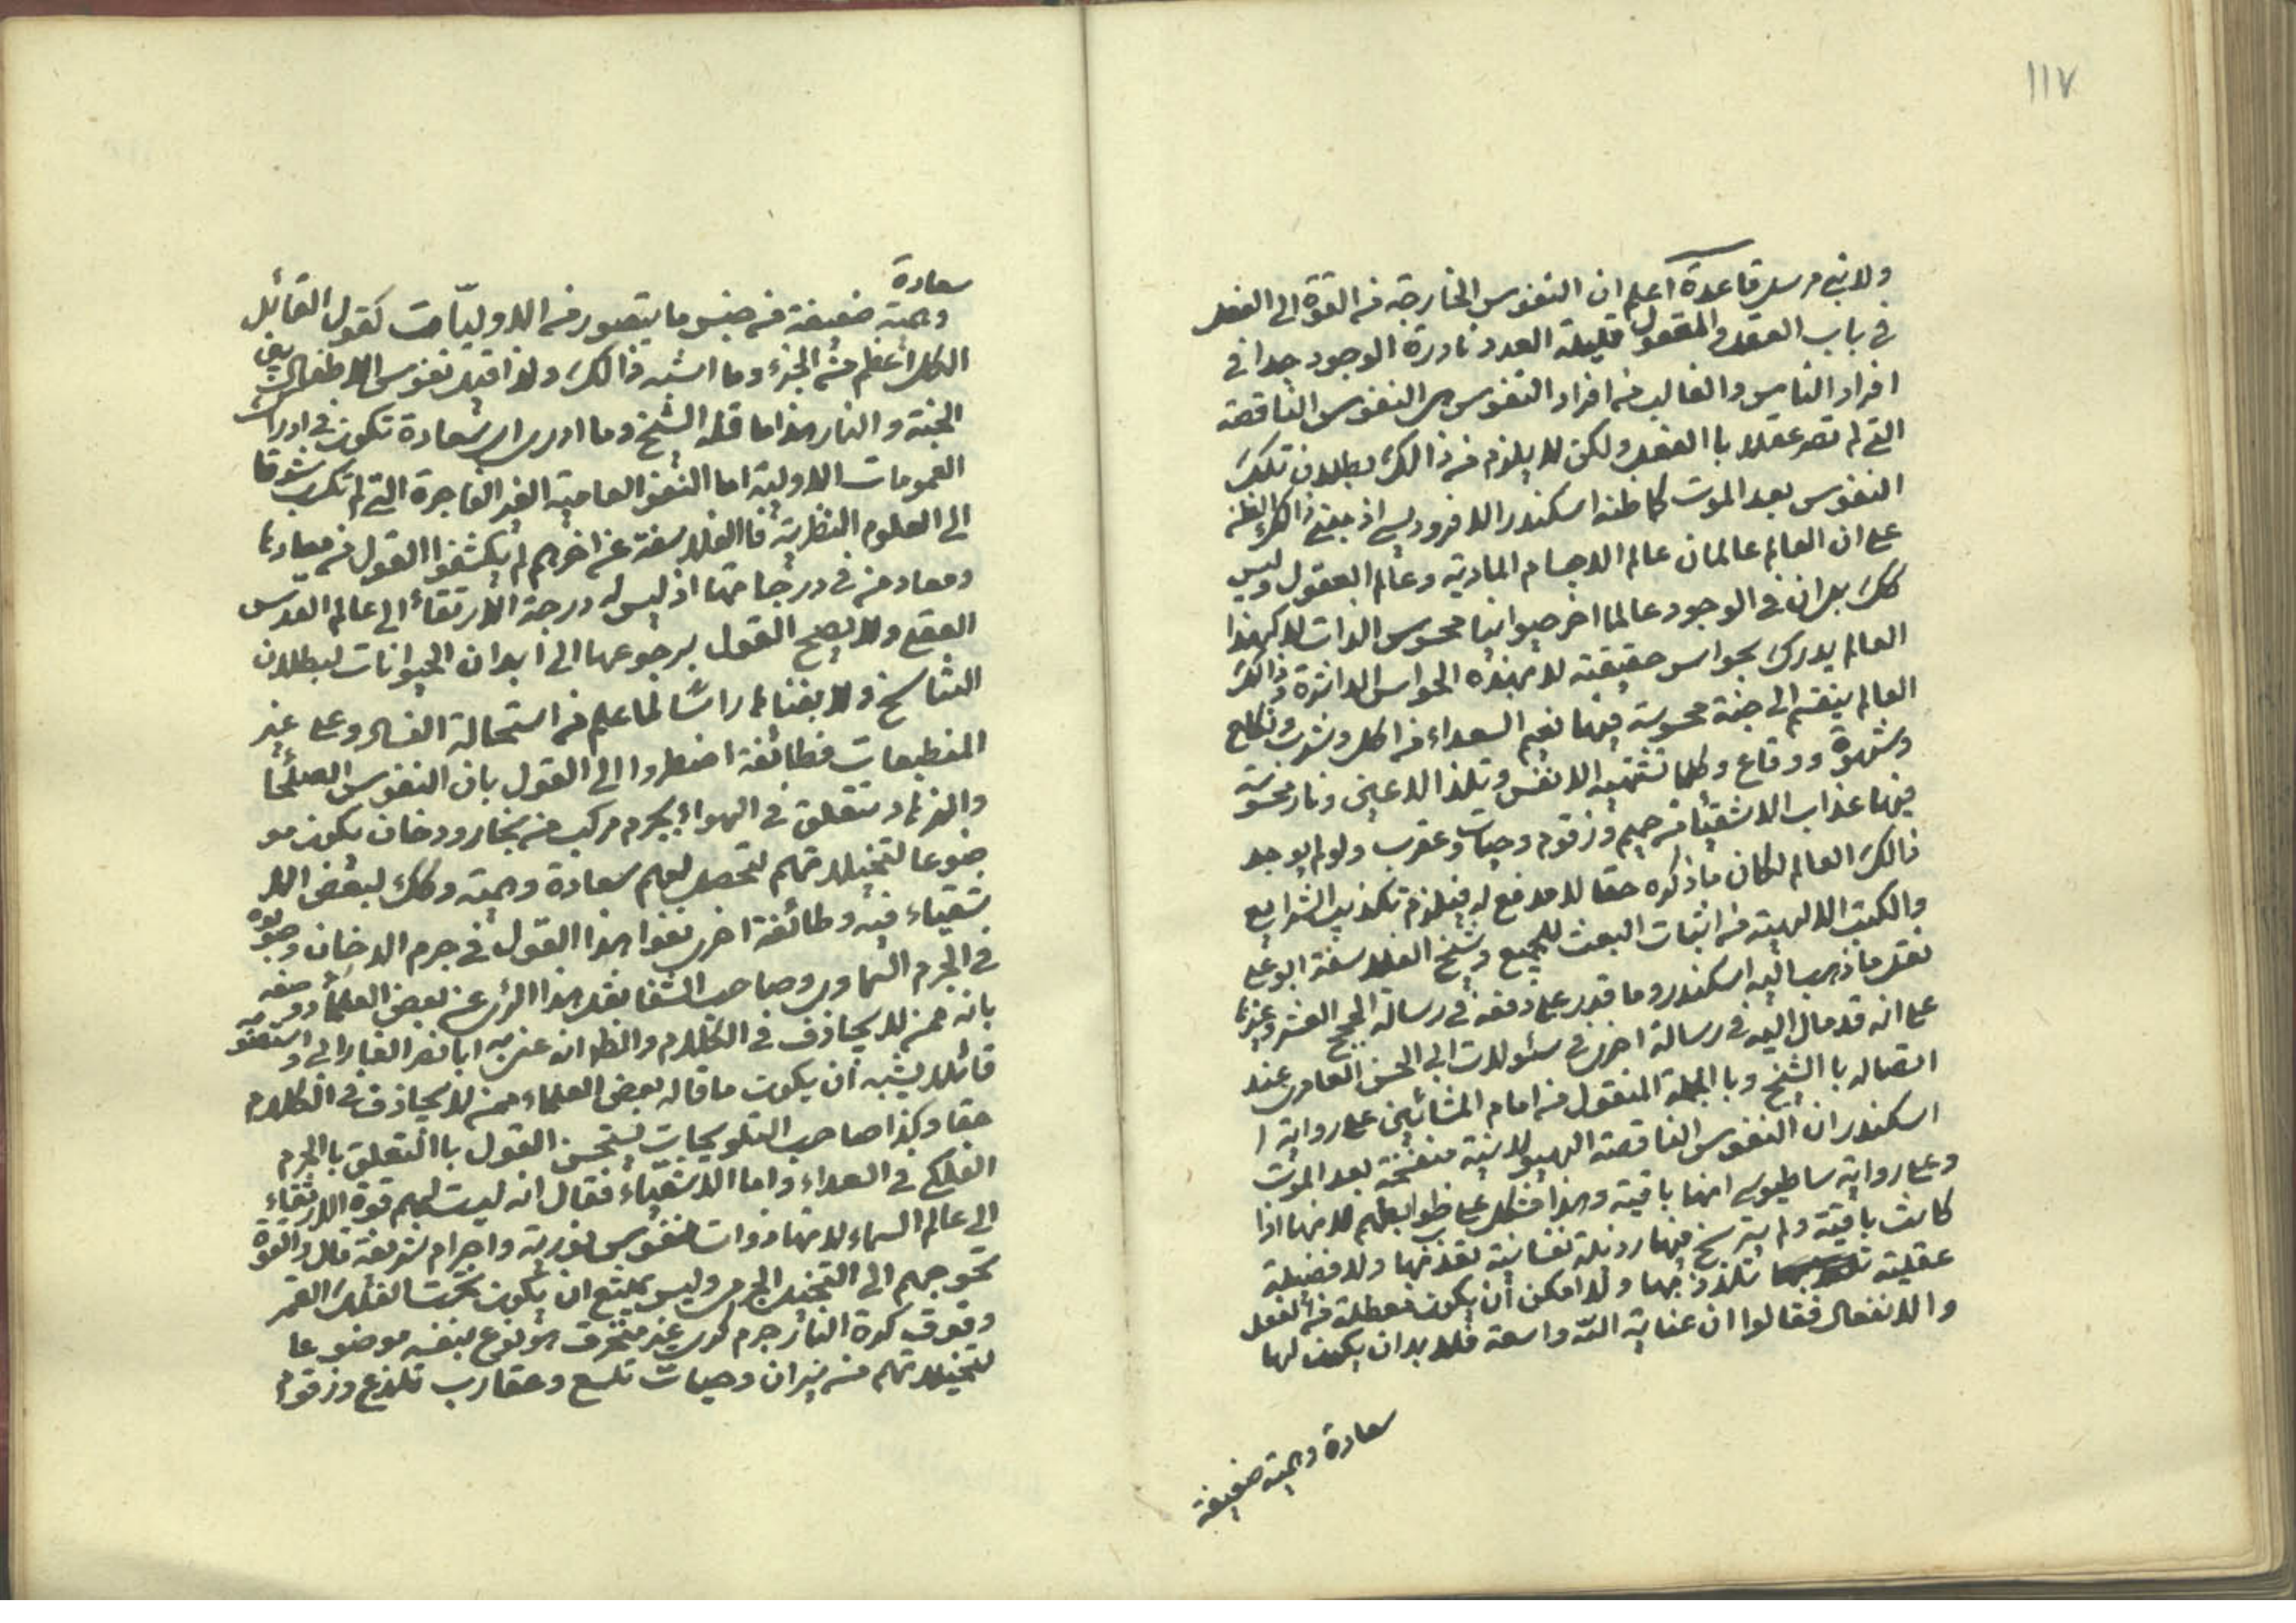 ١١٧
ولا نبي مرسل قاعدة اعلم ان النفوس الخارجة من القوة الى الفعل
في باب العقل والمعقول قليلة العدد نادرة الوجود جدا في
افراد الناس والغالب من افراد النفوس هي النفوس الناقصة
التي لم تصر عقلا با الفعل ولكن لا يلزم من ذالك بطلان تلك
النفوس بعد الموت كما ظنه اسكندر الافروديسي اذ مبنى ذالك الظن
على ان العالم عالمان عالم الاجسام المادية وعالم العقول وليس
كك بل ان في الوجود عالما اخر حيوانيا محسوس الذات لا كهذا
العالم يدرك بحواس حقيقته لا بهذه الحواس الداثرة وذالك
العالم ينقسم الى جنة محسوسة فيها نعيم السعداء من اكل وشرب ونكاح
وشهوة ووقاع وكلما تشتهيه الانفس وتلذ الاعين ونار محسوسة
فيها عذاب الاشقياء من حميم وزقوم وحيات وعقرب ولو لم يوجد
ذالك العالم لكان ما ذكره حقا لا مدفع له فيلزم تكذيب الشرايع
والكتب الالهية من اثبات البعث للجميع وشيخ الفلاسفة ابو علي
نقل ما ذهب اليه اسكندر وما قدر على دفعه في رسالة الحجج العشر وغيرها
على انه قد مال اليه في رسالة اخرى في سئولات ابي الحسن العامري عند
اتصاله با الشيخ وبا الجملة المنقول من امام المشائين على رواية ا
اسكندر ان النفوس الناقصة الهيولانية منفسخة بعد الموت
وعلى رواية ثامسطيوس انها باقية وهذا مشكل على ضوابطهم لانها اذا
كانت باقية ولم يترسخ فيها رذيلة نفسانية تعذبها ولا فضيلة
عقلية تلذذ بها ولا امكن أن يكون معطلة من الفعل
والانفعال فقالوا ان عناية الله واسعة فلا بد ان يكون لها
سعادة وهمية ضعيفة
سعادة
وهمية ضعيفة من جنس ما يتصور من الاوليّات كقول القائل
الكل اعظم من الجزء وما اشبه ذالك ولذا قيل نفوس الاطفال بين
الجنة والنار هذا ما قله الشيخ وما ادرى اي سعادة تكون في ادراك
العمومات الاولية اما النفس العامية الغير الفاجرة التي لم تكسب شوقا
الى العلوم النظرية فا الفلاسفة عن اخرهم لم يكشفوا القول من معادها
ومعاد من في درجاتها اذ ليس له درجة الارتقاء الى عالم القدس
العقلي ولا يصح القول برجوعها الى ابدان الحيوانات لبطلان
التناسخ ولا بفنائها راسًا لما علم من استحالة الفساد وعلى غير
المنطبعات فطائفة اضطروا الى القول بان النفوس الصلحا
والزهاد تتعلق في الهواء بجرم مركب من بخار ودخان يكون مو
ضوعا لتخيلاتهم لتحصل لهم سعادة وهمية وكك لبعض الا
شقياء فيه وطائفة اخرى نفوا هذا القول في جرم الدخان وصوبوه
في الجرم السماوي وصاحب الشفا نقل هذا الراى عن بعض العلماء ووصفه
بانه ممن لا يجازف في الكلام والظ انه عنى به ابا نصر الفارابي واستصوبه
قائلا يشبه أن يكون ما قاله بعض العلماء ممن لا يجازف في الكلام
حقا وكذا صاحب التلويحات يستحسن القول با التعلق با الجرم
الفلكي في السعداء واما الاشقياء فقال انه ليست لهم قوة الارتقاء
الى عالم السماء لانها ذوات نفوس نورية واجرام شريفة قال والقوة
تحوجهم الى التخيل الجرمي وليس يمتنع ان يكون تحت الفلك القمر
وفوق كرة النار جرم كرى غير منخرق هو نوع بنفسه موضوعا
لتخيلاتهم من نيران وحيات تلسع وعقارب تلذع وزقوم